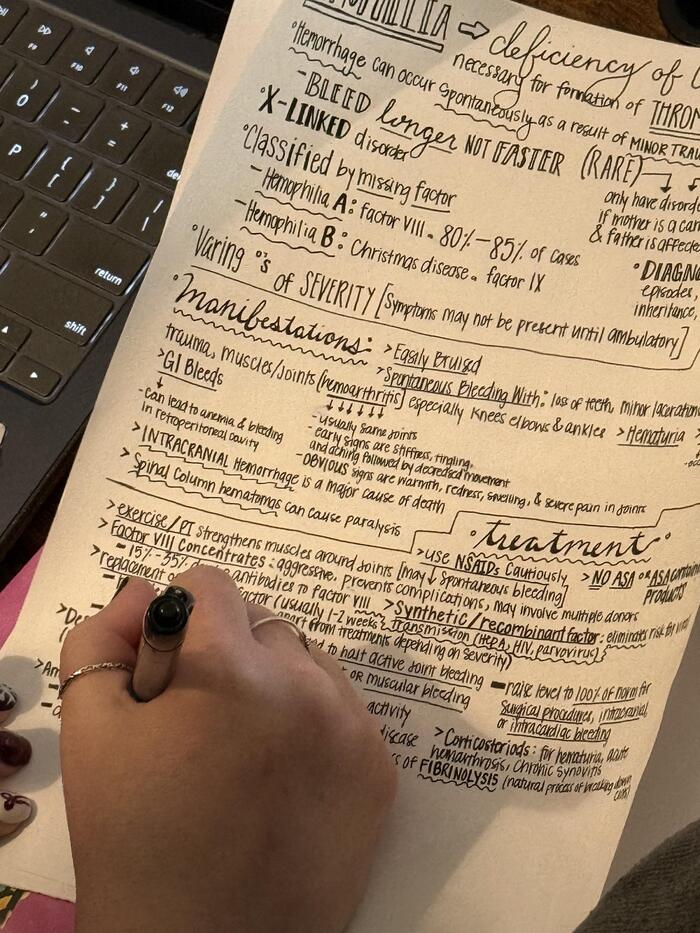 F10
F11
F12
del
return
shift
P
HEMOPHILIA ⇒ deficiency of
necessary for formation of THROM
°Hemorrhage can occur spontaneously as a result of MINOR TRAU
-BLEED longer NOT FASTER (RARE)
°X-LINKED disorder
only have disord
if mother is a car
& father is affecte
°Classified by missing factor
-Hemophilia A: factor VIII - 80%-85% of cases
-Hemophilia B: Christmas disease. factor IX
°DIAGN
episodes,
inheritance,
°Varing °'s of SEVERITY [Symptoms may not be present until ambulatory]
°Manifestations:
>Easily Bruised
>Spontaneous Bleeding With: loss of teeth, minor laceration
trauma, muscles/joints (hemoarthritis) especially knees elbows & ankles >Hematuria >
>GI Bleeds
-can lead to anemia & bleeding
in retroperitoneal cavity
-usually same joints
-early signs are stiffness, tingling,
and aching followed by decreased movement
-OBVIOUS signs are warmth, redness, swelling, & severe pain in joints
>INTRACRANIAL Hemorrhage is a major cause of death
>Spinal column hematomas can cause paralysis
°treatment°
>exercise/PT strengthens muscles around joints [may ↓ spontaneous bleeding]
>use NSAIDs Cautiously
>NO ASA or ASA containin
products
>Factor VIII Concentrates: aggressive, prevents complications, may involve multiple donors
-15%-35% antibodies to factor VIII
>Synthetic/recombinant factor: eliminates risk for viral
transmission (HEPA, HIV, parvovirus)
>replacement factor (usually 1-2 weeks
apart from treatments depending on severity)
to halt active joint bleeding
or muscular bleeding
-raise level to 100% of norm for
surgical procedures, intracranial,
or intracardiac bleeding
activity
disease
>Corticosteriods: for hematuria, acute
hemarthrosis, chronic synovitis
of FIBRINOLYSIS (natural process of breaking down